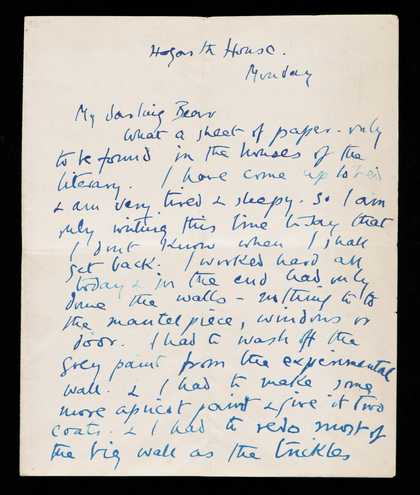 Hogarth House.
Monday
My darling Bear
What a sheet of paper - only
to be found in the houses of the
literary. I have come up to bed
& am very tired & sleepy. So I am
only writing this time to say that
I dont know when I shall
get back. I worked hard all
today & in the end had only
done the walls - nothing to
the mantelpiece, windows or
door. I had to wash off the
grey paint from the experimental
wall. & I had to make some
more apricot paint & give it two
coats. & I had to redo most of
the big wall as the trickles